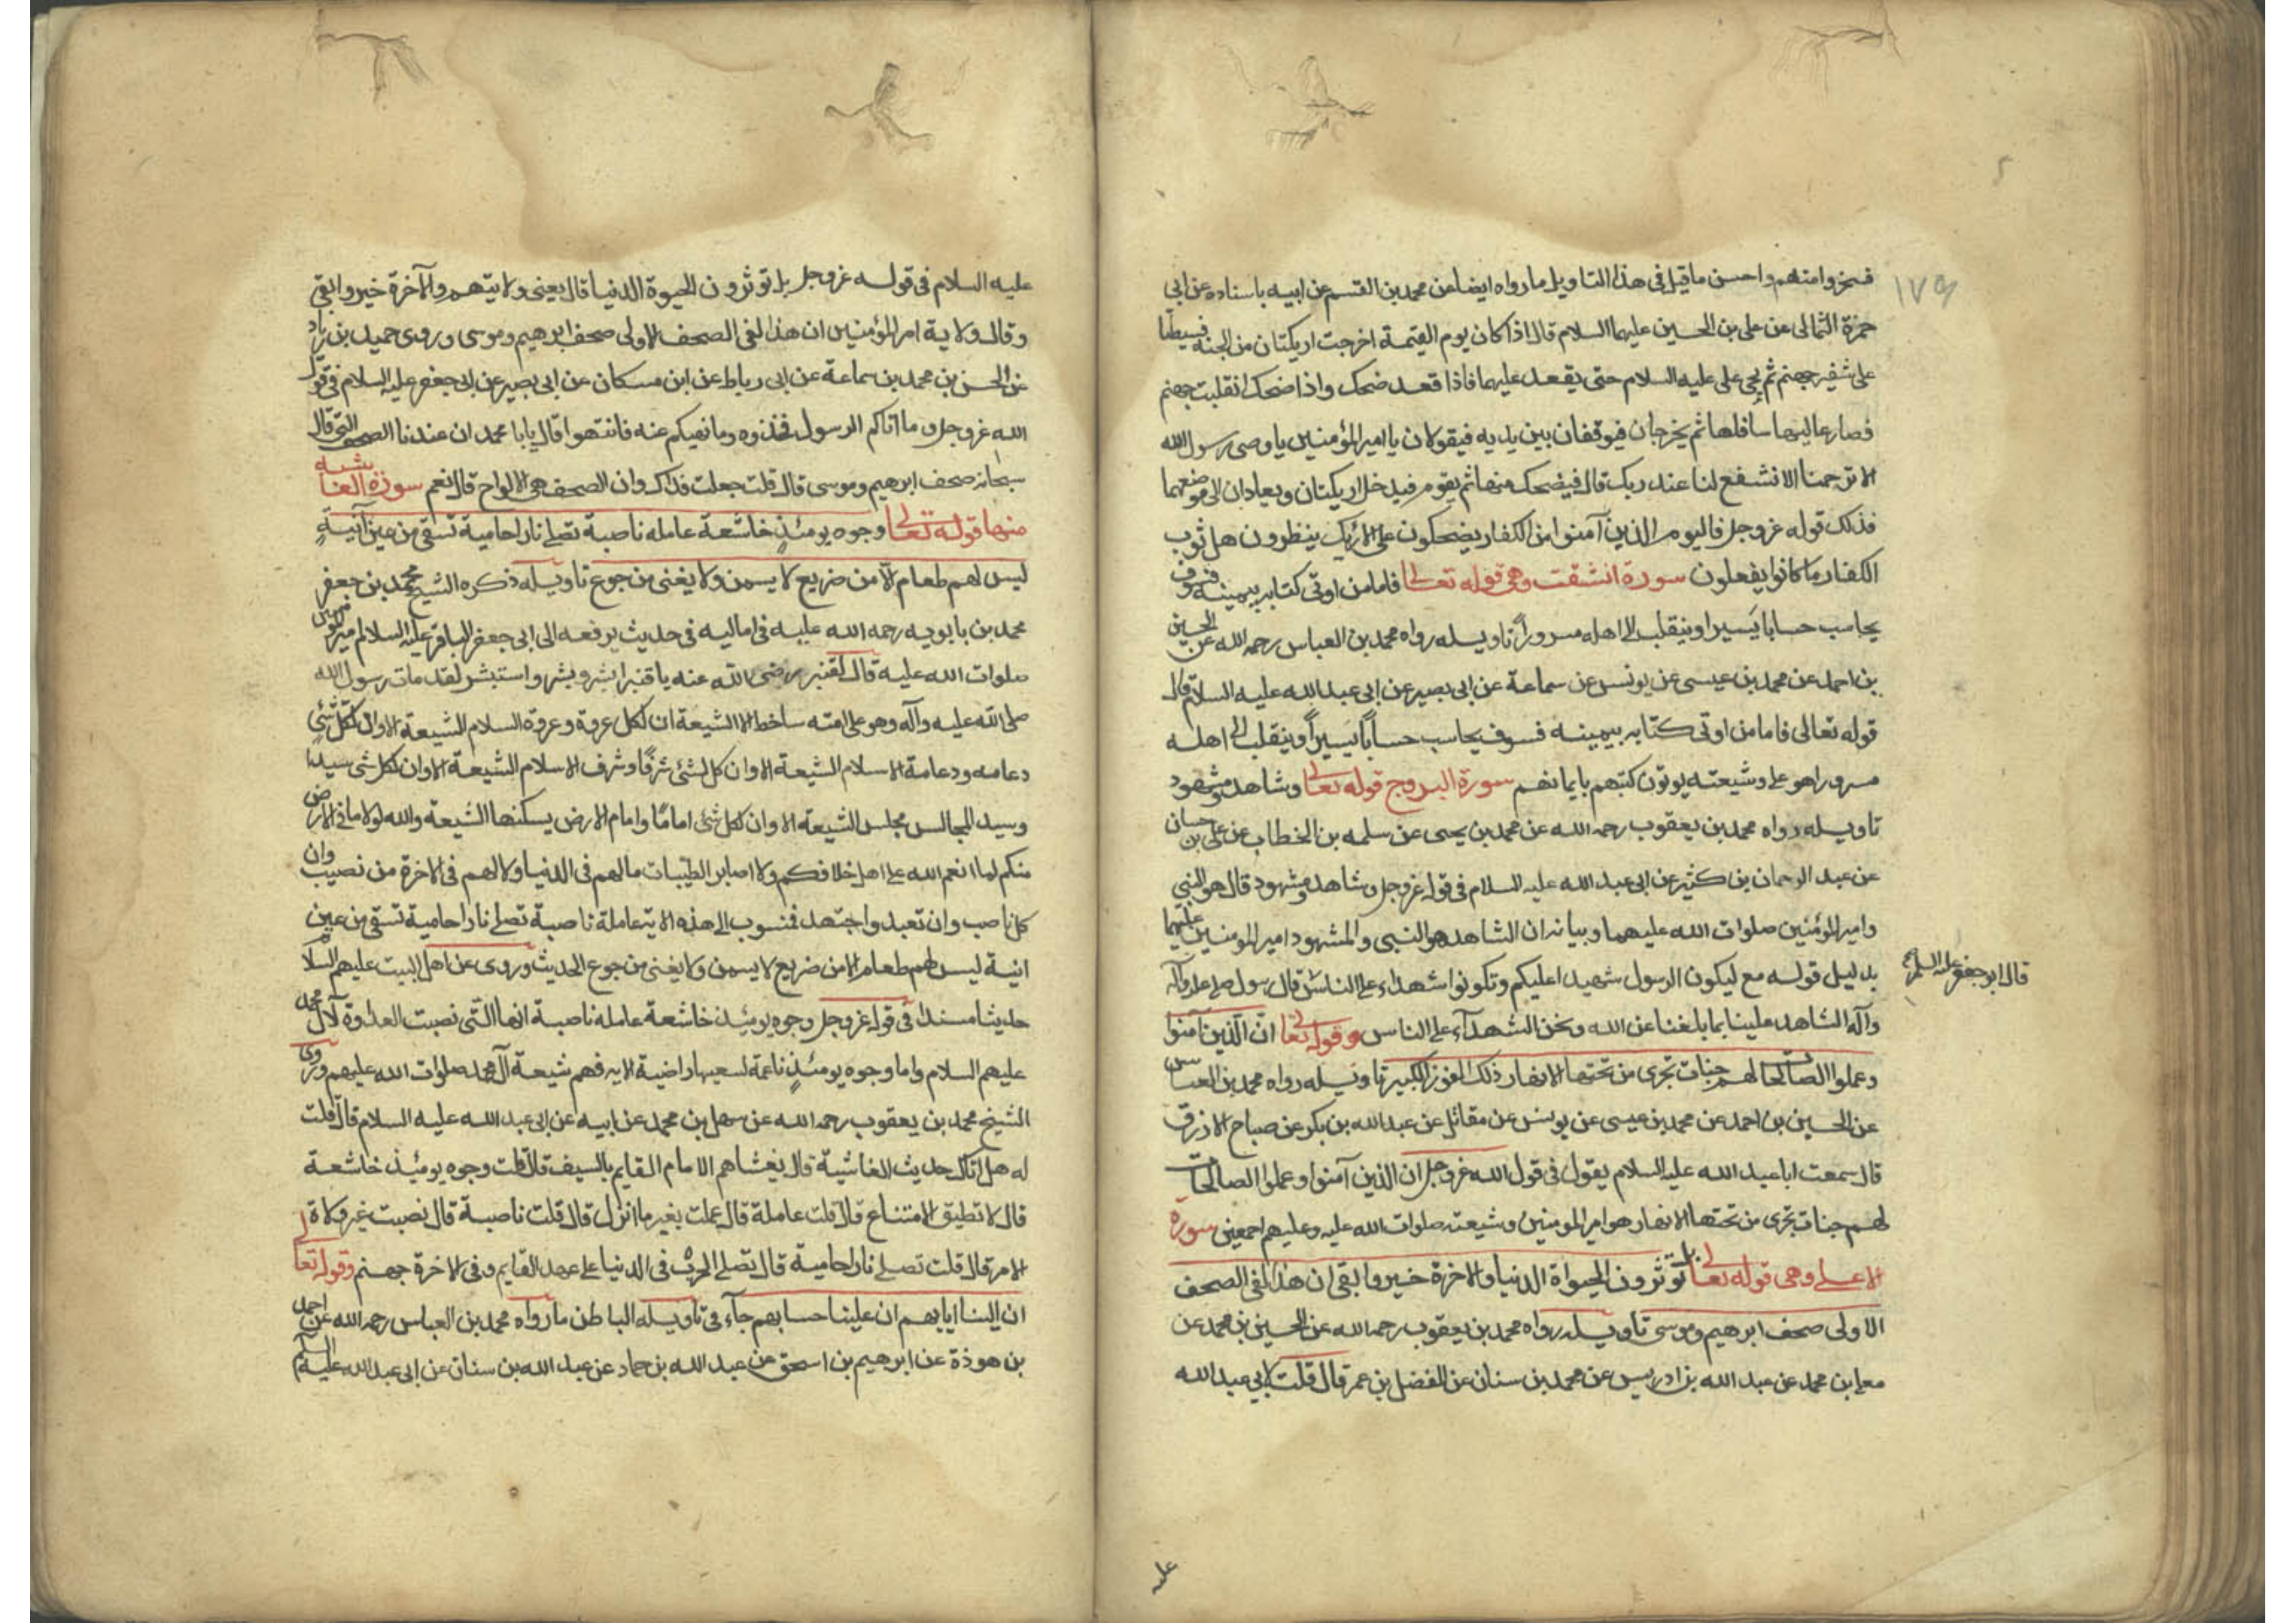 ١٧٩
فسخروا منهم واحسن ما قيل في هذا التاويل ما رواه ايضا من محمد بن القسم عن ابيه باسناده عن ابي
حمزة الثمالى عن على بن الحسين عليهما السلام قال اذا كان يوم القيمة اخرجت اريكتان من الجنة فبسطتا
على شفير جهنم ثم يجئ على عليه السلام حتى يقعد عليهما فاذا قعد ضحك واذا ضحك انقلبت جهنم
فصار عاليها سافلها ثم يخرجان فيوقفان بين يديه فيقولان يا امير المؤمنين يا وصى رسول الله
الا ترحمنا الا تشفع لنا عند ربك قال فيضحك منهما ثم يقوم فيدخل اريكتان ويعادان الى موضعهما
فذلك قوله عز وجل فاليوم الذين آمنوا من الكفار يضحكون على الارائك ينظرون هل ثوب
الكفار ما كانوا يفعلون سورة انشقت وهى قوله تعالى فاما من اوتى كتابه بيمينه فسوف
يحاسب حسابا يسيرا وينقلب الى اهله مسرورا تاويله رواه محمد بن العباس رحمه الله عن الحسين
بن احمد عن محمد بن عيسى عن يونس عن سماعة عن ابى بصير عن ابى عبد الله عليه السلام قال
قوله تعالى فاما من اوتى كتابه بيمينه فسوف يحاسب حسابا يسيرا وينقلب الى اهله
مسرورا هو على وشيعته يوتون كتبهم بايمانهم سورة البروج قوله تعالى وشاهد ومشهود
تاويله رواه محمد بن يعقوب رحمه الله عن محمد بن يحيى عن سلمه بن الخطاب عن على بن حسان
عن عبد الرحمان بن كثير عن ابى عبد الله عليه السلام فى قوله عز وجل وشاهد ومشهود قال هو النبى
وامير المؤمنين صلوات الله عليهما وبيانه ان الشاهد هو النبى والمشهود امير المومنين عليهما
بدليل قوله مع ليكون الرسول شهيدا عليكم وتكونوا شهداء على الناس قال رسول صلى الله عليه وآله
قال ابو جعفر عليه السلام
وآله الشاهد علينا بما بلغنا عن الله ونحن الشهدآء على الناس وقوله تعالى ان الذين آمنوا
وعملوا الصالحات لهم جنات تجرى من تحتها الانهار ذلك الفوز الكبير تاويله رواه محمد بن العباس
عن الحسين بن احمد عن محمد بن عيسى عن يونس عن مقاتل عن عبد الله بن بكر عن صباح الازرق
قال سمعت ابا عبد الله عليه السلام يقول فى قول الله عز وجل ان الذين آمنوا وعملوا الصالحات
لهم جنات تجرى من تحتها الانهار هو امير المومنين وشيعته صلوات الله عليه وعليهم اجمعين سورة
الاعلى وهى قوله تعالى بل توثرون الحيواة الدنيا والاخرة خير وابقى ان هذا لفى الصحف
الاولى صحف ابرهيم وموسى تاويله رواه محمد بن يعقوب رحمه الله عن الحسين بن محمد عن
معلى بن محمد عن عبد الله بن ادريس عن محمد بن سنان عن المفضل بن عمر قال قلت لابى عبد الله
عليه
عليه السلام فى قوله عز وجل بل توثرون الحيوة الدنيا قال يعنى ولايتهم والآخرة خير وابقى
وقال ولاية امير المؤمنين ان هذا لفى الصحف الاولى صحف ابرهيم وموسى وروى حميد بن زياد
عن الحسن بن محمد بن سماعة عن ابن رباط عن ابن مسكان عن ابى بصير عن ابى جعفر عليه السلام فى قول
الله عز وجل وما آتاكم الرسول فخذوه وما نهيكم عنه فانتهوا قال يا با محمد ان عندنا الصحف التى قال
سبحانه صحف ابرهيم وموسى قال قلت جعلت فداك وان الصحف هى الالواح قال نعم سورة الغاشيه
منها قوله تعالى وجوه يومئذ خاشعة عامله ناصبة تصلى نارا حامية تسقى من عين آنية
ليس لهم طعام الا من ضريع لا يسمن ولا يغنى من جوع تاويله ذكره الشيخ محمد بن جعفر
محمد بن بابويه رحمه الله عليه فى اماليه فى حديث يرفعه الى ابى جعفر الباقر عليه السلام امير المومنين
صلوات الله عليه قال لقنبر رضى الله عنه يا قنبر ابشر وبشر واستبشر لقد مات رسول الله
صلى الله عليه وآله وهو على امته ساخط الا الشيعة ان لكل عروة وعروة السلام الشيعة الا وان لكل شئ
دعامه ودعامة الاسلام الشيعة الا وان كل لشئ شرفا وشرف الاسلام الشيعة الا وان لكل شى سيدا
وسيد المجالس مجلس الشيعة الا وان لكل شئ اماما وامام الارض يسكنها الشيعة والله لولا ما فى الارض
منكم لما انعم الله على اهل خلافكم ولا اصابو الطيبات مالهم فى الدنيا ولا لهم فى الاخرة من نصيب وان
كل ناصب وان تعبد واجتهد فمنسوب الى هذه الاية عاملة ناصبة تصلى نارا حامية تسقى من عين
انية ليس لهم طعام الا من ضريع لا يسمن ولا يغنى من جوع الحديث وروى عن اهل البيت عليهم السلام
حديثا مسندا فى قوله عز وجل وجوه يومئذ خاشعة عامله ناصبة انها التى نصبت العداوة لآل محمد
عليهم السلام واما وجوه يومئذ ناعمة لسعيها راضية الايه فهم شيعة آل محمد صلوات الله عليهم وروى
الشيخ محمد بن يعقوب رحمه الله عن سهل بن محمد عن ابيه عن ابى عبد الله عليه السلام قال قلت
له هل اتاك حديث الغاشية قال يغشاهم الامام القايم بالسيف قال قلت وجوه يومئذ خاشعة
قال لا تطيق الامتناع قال قلت عاملة قال عملت بغير ما انزل قال قلت ناصبة قال نصبت غير ولاة
الامر قال قلت تصلى نارا حامية قال تصلى الحرب فى الدنيا على عهد القايم وفى الاخرة جهنم وقوله تعالى
ان الينا ايابهم ان علينا حسابهم جآء فى تاويله الباطن ما رواه محمد بن العباس رحمه الله عن احمد
بن هوذة عن ابرهيم بن اسحق عن عبد الله بن حماد عن عبد الله بن سنان عن ابى عبد الله عليه السلم